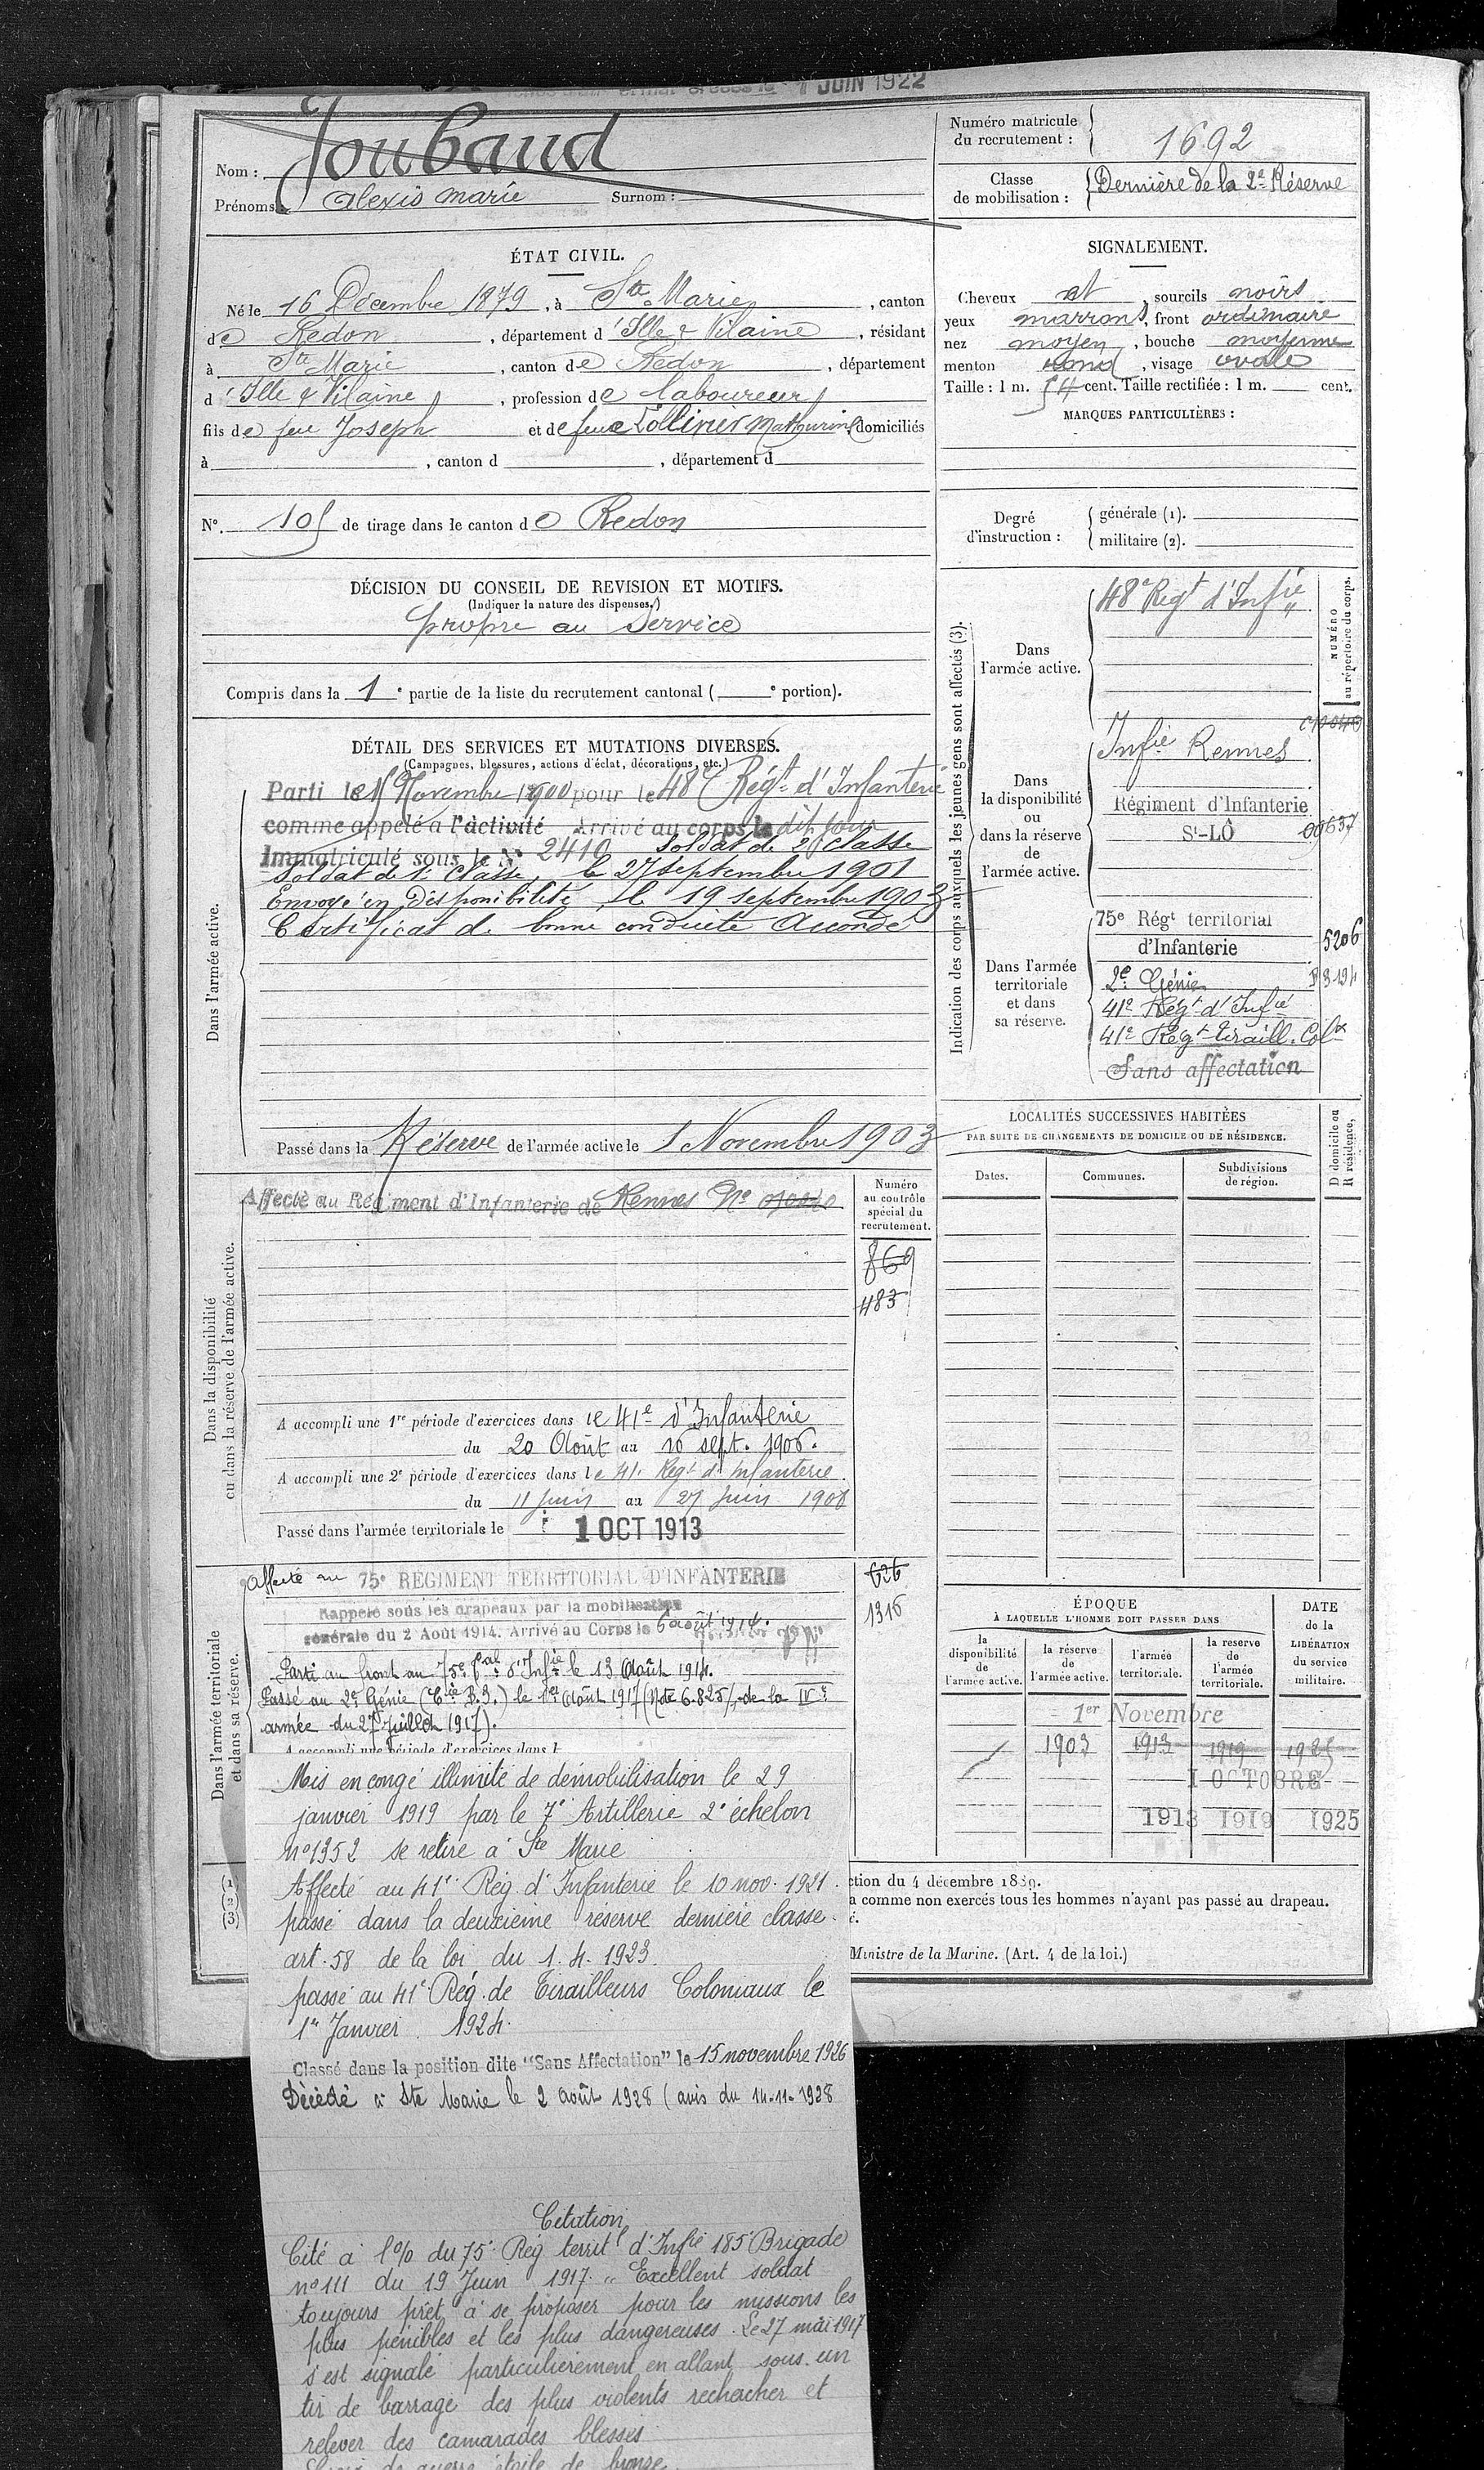 1 JUIN 1922
Nom : Joubaud
Prénoms : Alexis Marie Surnom :
Numéro matricule
du recrutement : 1692
Classe
de mobilisation : Dernière de la 2e Réserve
ÉTAT CIVIL.
Né le 16 Décembre 1879, à Ste Marie, canton
de Redon, département d'Ille & Vilaine, résidant
à Ste Marie, canton de Redon, département
d'Ille & Vilaine, profession de laboureur
fils de feu Joseph et de feue Collivier Mathurine domiciliés
à , canton d , département d
N°. 105 de tirage dans le canton de Redon
SIGNALEMENT.
Cheveux et , sourcils noirs
yeux marrons, front ordinaire
nez moyen, bouche moyenne
menton rond, visage ovale
Taille : 1 m. 54 cent. Taille rectifiée : 1 m. cent.
MARQUES PARTICULIÈRES :
Degré
d'instruction :
générale (1).
militaire (2).
DÉCISION DU CONSEIL DE REVISION ET MOTIFS.
(Indiquer la nature des dispenses.)
propre au service
Compris dans la 1e partie de la liste du recrutement cantonal ( e portion).
DÉTAIL DES SERVICES ET MUTATIONS DIVERSES.
(Campagnes, blessures, actions d'éclat, décorations, etc.)
Dans l'armée active.
Parti le 15 Novembre 1900 pour le 48e Régt d'Infanterie
comme appelé à l'activité Arrivé au corps le dit jour
Immatriculé sous le N° 2410 Soldat de 2e classe
Soldat de 1e classe, le 27 septembre 1901
Envoyé en disponibilité, le 19 septembre 1903
Certificat de bonne conduite Accordé
Passé dans la Réserve de l'armée active le 1 Novembre 1903
Indication des corps auxquels les jeunes gens sont affectés (3).
NUMÉRO
au répertoire du corps.
Dans
l'armée active.
48e Régt d'Infie
Dans
la disponibilité
ou
dans la réserve
de
l'armée active.
Infie Rennes
Régiment d'Infanterie
St-LÔ 00637
Dans l'armée
territoriale
et dans
sa réserve.
75e Régt territorial
d'Infanterie 5206
2e Génie
41e Régt d'Infie
41e Régt tiraill. Colx
Sans affectation
LOCALITÉS SUCCESSIVES HABITÉES
PAR SUITE DE CHANGEMENTS DE DOMICILE OU DE RÉSIDENCE.
Dates. Communes. Subdivisions
de région.
D domicile ou
R résidence.
Dans la disponibilité
ou dans la réserve de l'armée active.
Affecté au Régiment d'Infanterie de Rennes N°
Numéro
au contrôle
spécial du
recrutement.
869
483
A accompli une 1re période d'exercices dans le 41e d'Infanterie
du 20 Août au 16 sept. 1906.
A accompli une 2e période d'exercices dans le 41e Régt d'Infanterie
du 11 Juin au 27 Juin 1908
Passé dans l'armée territoriale le 1 OCT 1913
Dans l'armée territoriale
et dans sa réserve.
Affecté au 75e RÉGIMENT TERRITORIAL D'INFANTERIE
Rappelé sous les drapeaux par la mobilisation
générale du 2 Août 1914. Arrivé au Corps le 6 août 1914.
Parti au front au 75e tal d'Infie le 13 Août 1914.
Passé au 2e Génie (Cie B.3.) le 1er Août 1917 (Note 6.825/, de la IVe
armée du 27 Juillet 1917).
A accompli une période d'exercices dans l
626
1316
ÉPOQUE
À LAQUELLE L'HOMME DOIT PASSER DANS
DATE
de la
LIBÉRATION
du service
militaire.
la
disponibilité
de
l'armée active.
la réserve
de
l'armée active.
l'armée
territoriale.
la reserve
de
l'armée
territoriale.
1er Novembre
1903 1913 1919 1925
1 OCTOBRE
1913 1919 1925
Mis en congé illimité de démobilisation le 29
janvier 1919 par le 7e Artillerie 2e échelon
n° 1352 se retire à Ste Marie
Affecté au 41e Rég. d'Infanterie le 10 nov. 1921.
passé dans la deuxième réserve dernière classe.
art. 58 de la loi du 1. 4. 1923.
passé au 41e Rég. de Tirailleurs Coloniaux le
1er Janvier 1924.
Classé dans la position dite "Sans Affectation" le 15 novembre 1926
Décédé à Ste Marie le 2 août 1928 (avis du 14-11-1928
(1)
(2)
(3)
ction du 4 décembre 1889.
a comme non exercés tous les hommes n'ayant pas passé au drapeau.
é.
Ministre de la Marine. (Art. 4 de la loi.)
Citation
Cité à l'% du 75e Rég territl d'Infie 185e Brigade
n° 111 du 19 Juin 1917. "Excellent soldat
toujours prêt à se proposer pour les missions les
plus pénibles et les plus dangereuses. Le 27 mai 1917
s'est signalé particulièrement en allant sous un
tir de barrage des plus violents rechercher et
relever des camarades blessés.
Croix de guerre étoile de bronze